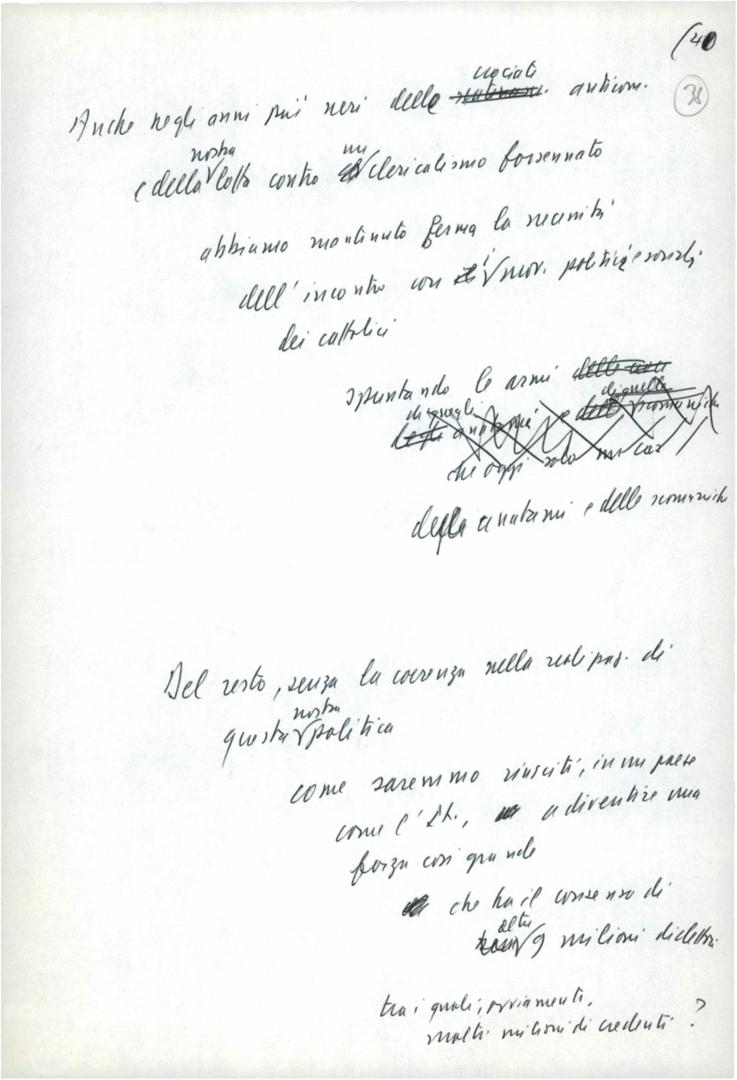 (40
38
Anche negli anni più neri delle crociate anticom.
e della nostra lotta contro un clericalismo forsennato
abbiamo mantenuto ferma la necessità
dell'incontro con i mov. politici e sociali
dei cattolici
spuntando le armi
di quegli anatemi e di quelle scomuniche
che oggi solo
degli anatemi e delle scomuniche
Del resto, senza la coerenza nella realizzaz. di
questa nostra politica
come saremmo riusciti, in un paese
come l'It., a diventare una
forza così grande
che ha il consenso di
oltre 9 milioni di elettori
tra i quali, ovviamente,
molti milioni di credenti?